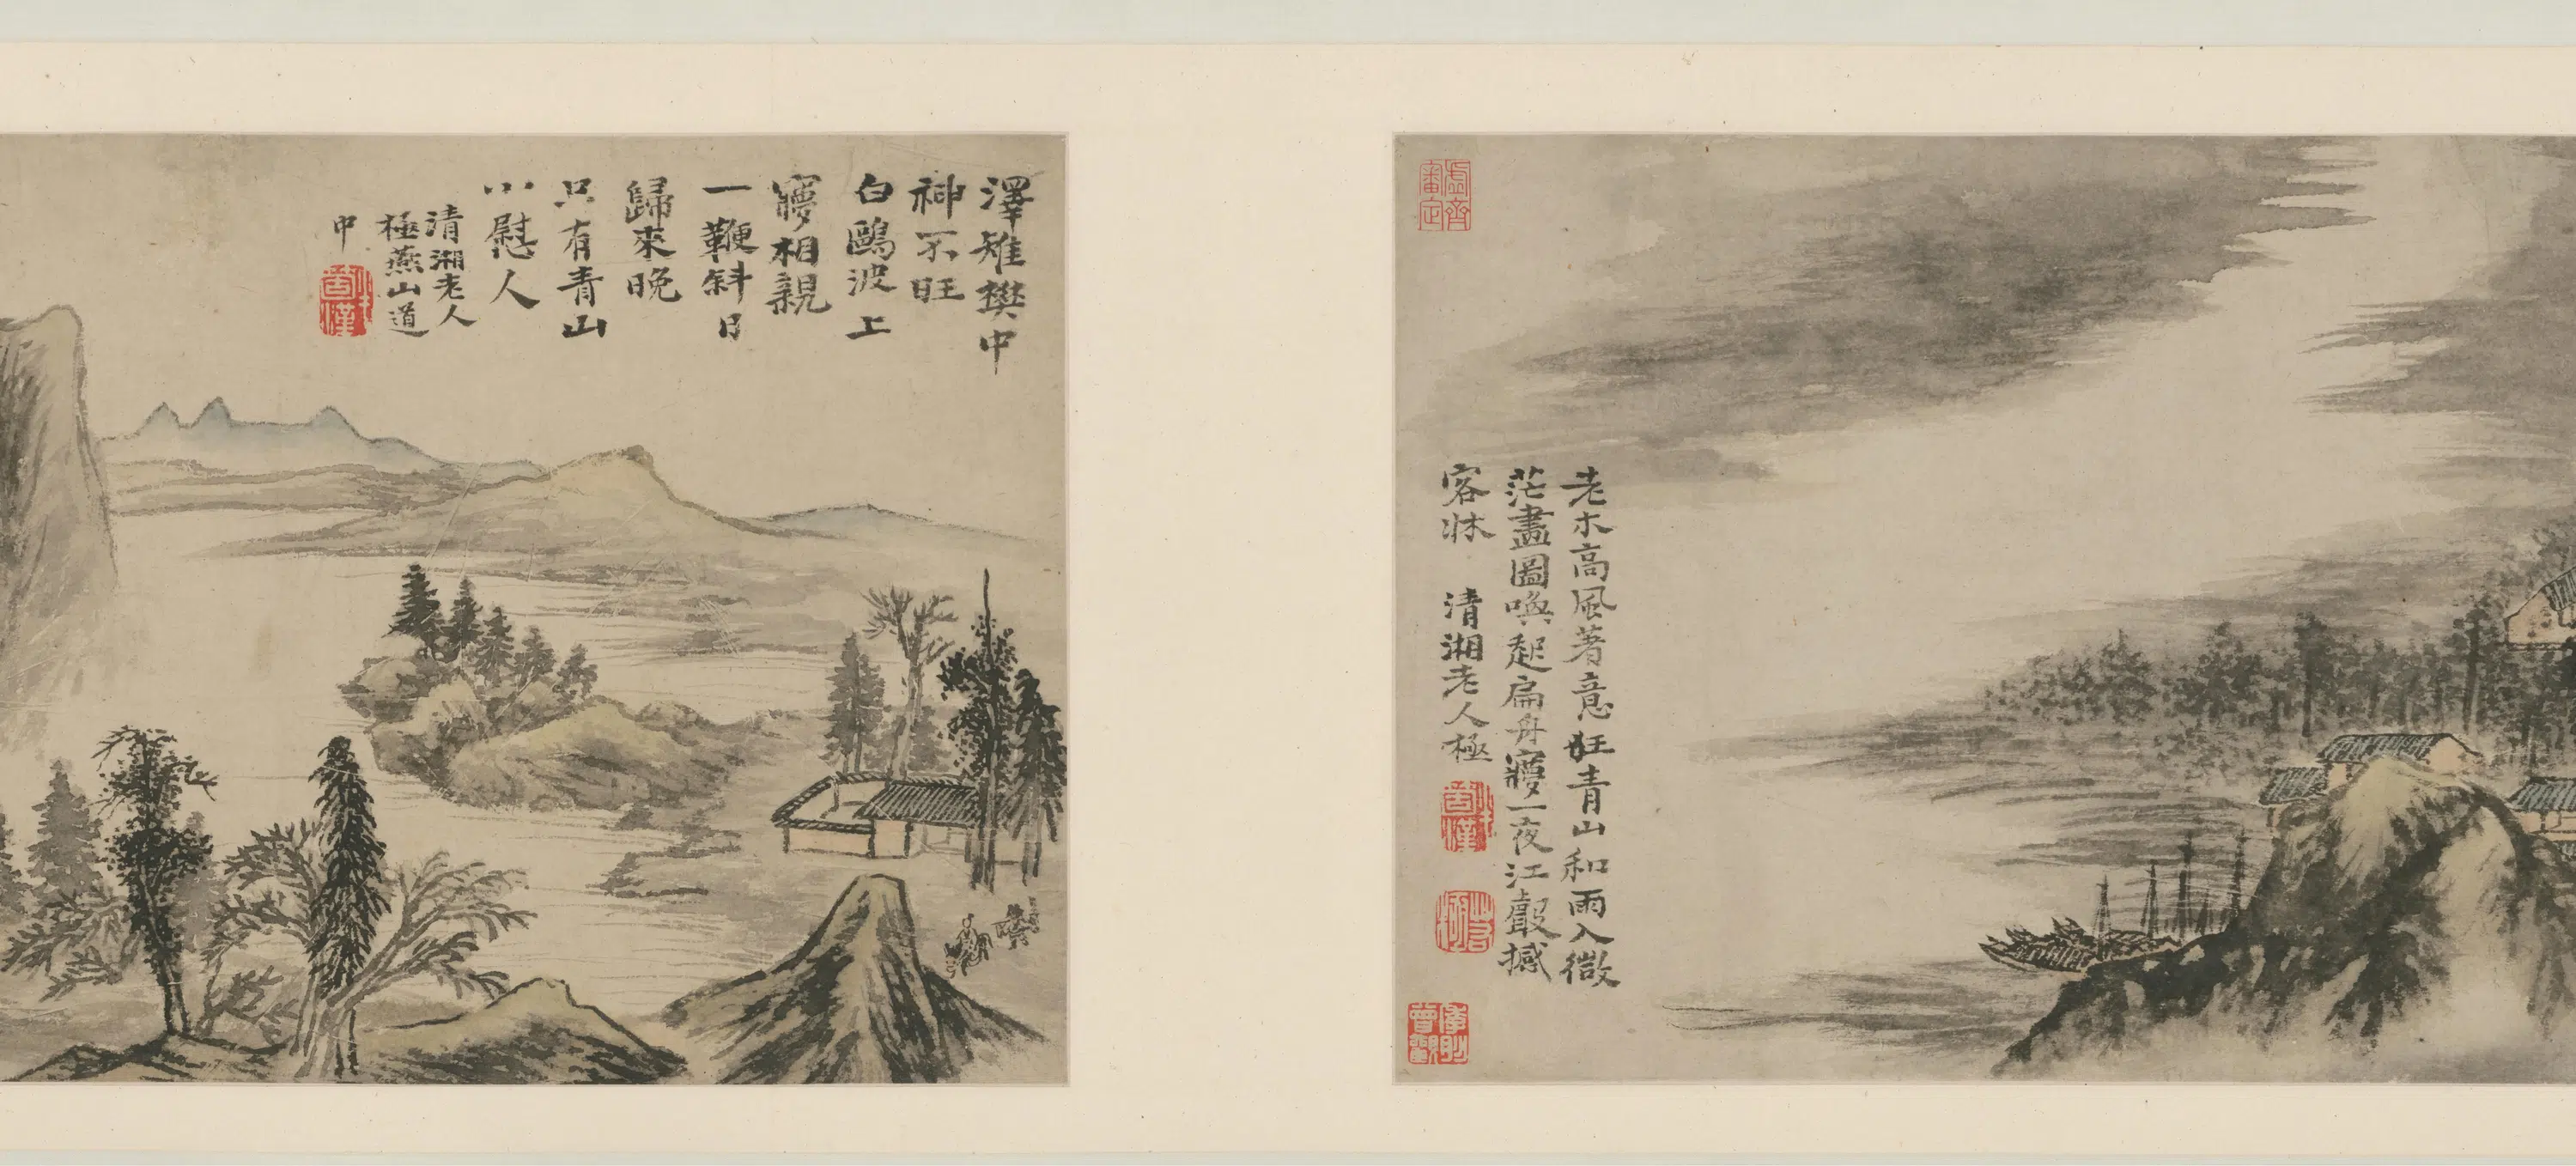 老木高風著意狂青山和雨入微
茫畫圖喚起扁舟夢一夜江聲撼
客牀 清湘老人極
澤雉樊中
神不旺
白鷗波上
夢相親
一鞭斜日
歸來晚
只有青山
小慰人
清湘老人
極燕山道
中
虛齋審定